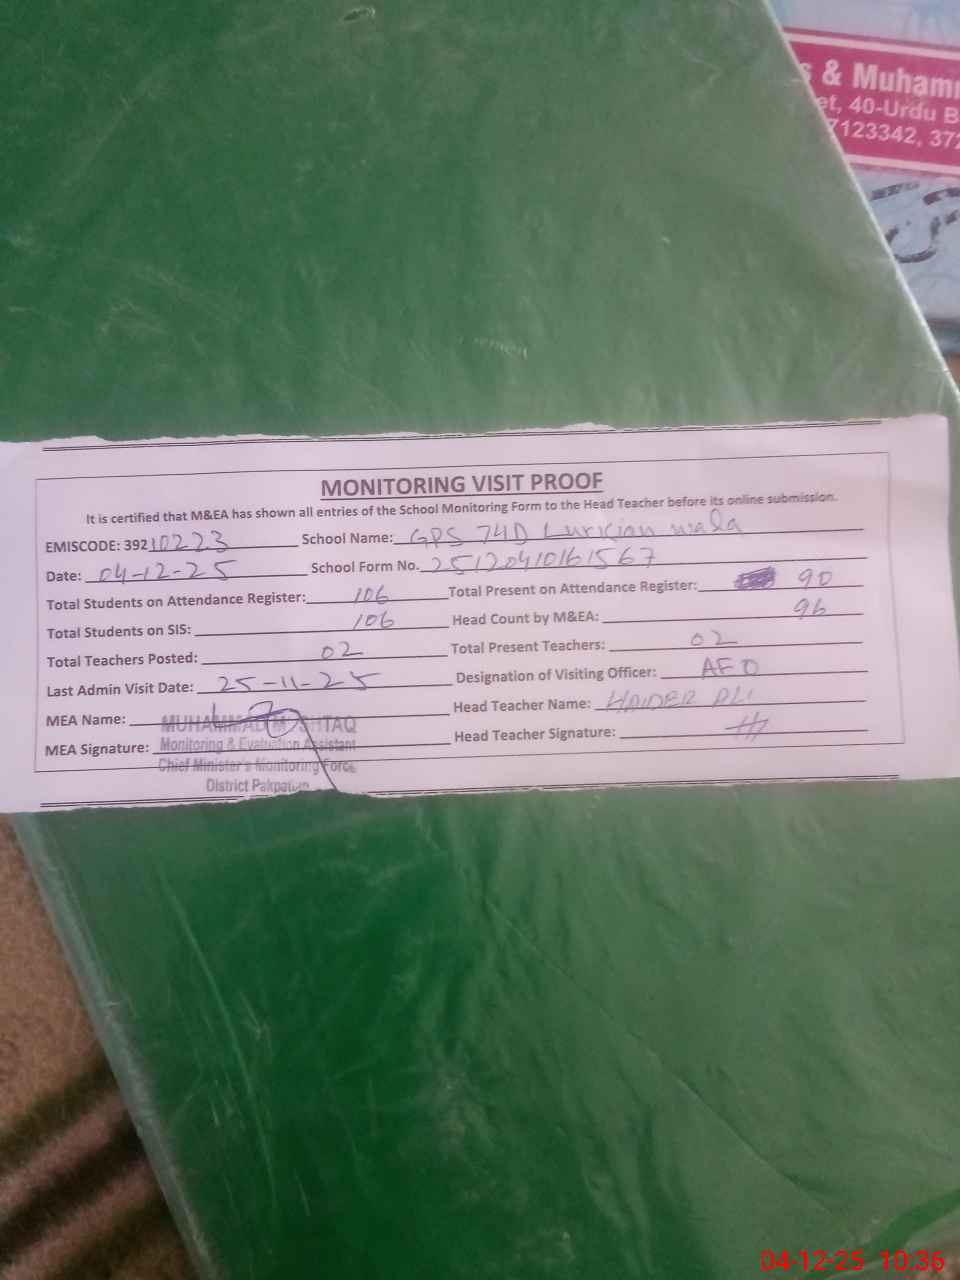 s & Muhamm
et, 40-Urdu B
7123342, 372
MONITORING VISIT PROOF
It is certified that M&EA has shown all entries of the School Monitoring Form to the Head Teacher before its online submission.
EMISCODE: 39210223 School Name: GPS 74D Lurkian wala
Date: 04-12-25 School Form No. 25120410161567
Total Students on Attendance Register: 106 Total Present on Attendance Register: 90
Total Students on SIS: 106 Head Count by M&EA: 96
Total Teachers Posted: 02 Total Present Teachers: 02
Last Admin Visit Date: 25-11-25 Designation of Visiting Officer: AEO
MEA Name: MUHAMMAD MUSHTAQ Head Teacher Name: HAIDER ALI
MEA Signature: Monitoring & Evaluation Assistant Head Teacher Signature:
Chief Minister's Monitoring Force
District Pakpattan
04-12-25 10:36